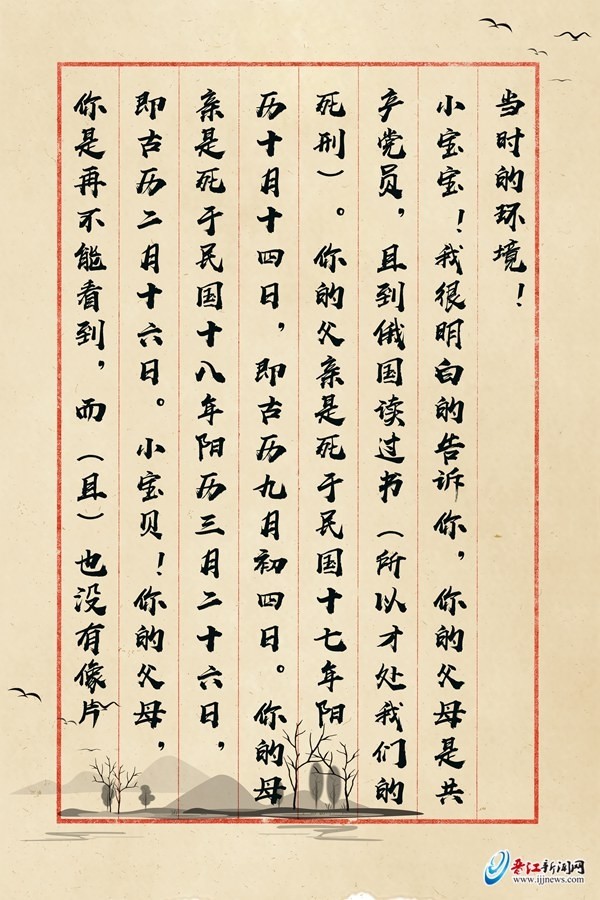 当时的环境！
小宝宝！我很明白的告诉你，你的父母是共
产党员，且到俄国读过书（所以才处我们的
死刑）。你的父亲是死于民国十七年阳
历十月十四日，即古历九月初四日。你的母
亲是死于民国十八年阳历三月二十六日，
即古历二月十六日。小宝贝！你的父母，
你是再不能看到，而（且）也没有像片
晋江新闻网
www.ijjnews.com